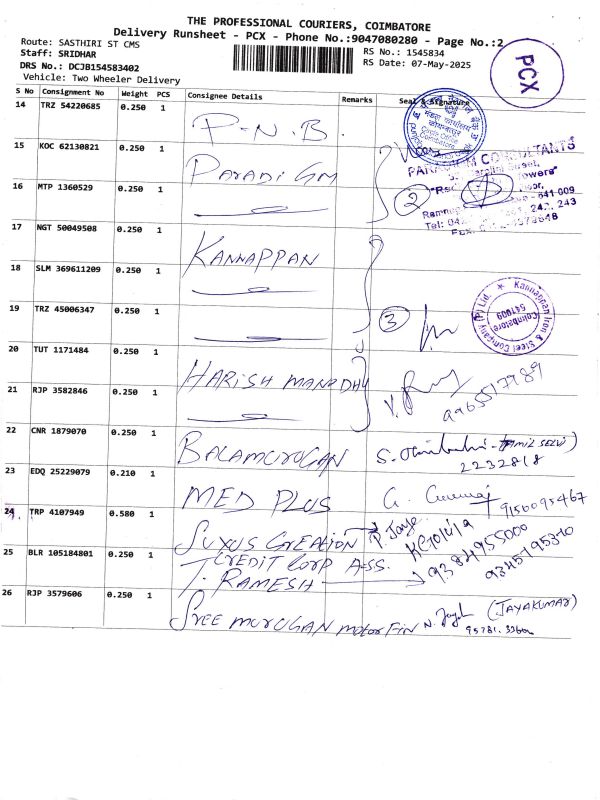 THE PROFESSIONAL COURIERS, COIMBATORE
Delivery Runsheet - PCX - Phone No.:9047080280 - Page No.:2
Route: SASTHIRI ST CMS
RS No.: 1545834
Staff: SRIDHAR
RS Date: 07-May-2025
DRS No.: DCJB154583402
Vehicle: Two Wheeler Delivery
PCX
S No Consignment No Weight PCS Consignee Details Remarks Seal & Signature
14 TRZ 54220685 0.250 1 P.N.B.
15 KOC 62130821 0.250 1 Paradigm
CONSULTANTS
16 MTP 1360529 0.250 1 2
17 NGT 50049508 0.250 1 KANNAPPAN
18 SLM 369611209 0.250 1
19 TRZ 45006347 0.250 1 3
Kannappan Iron & Steel Company (P) Ltd.
Coimbatore
641009
20 TUT 1171484 0.250 1 HARISH MANADHU
21 RJP 3582846 0.250 1
22 CNR 1879070 0.250 1 BALAMURUGAN
2232818
23 EDQ 25229079 0.210 1 MED PLUS 9156095467
24 TRP 4107949 0.580 1 SUXUS CREATION P. Jaye
CREDIT CORP ASS.
25 BLR 105184801 0.250 1 T. RAMESH 9384955000 9345195310
26 RJP 3579606 0.250 1 SREE MURUGAN MOTOR FIN (JAYAKUMAR)